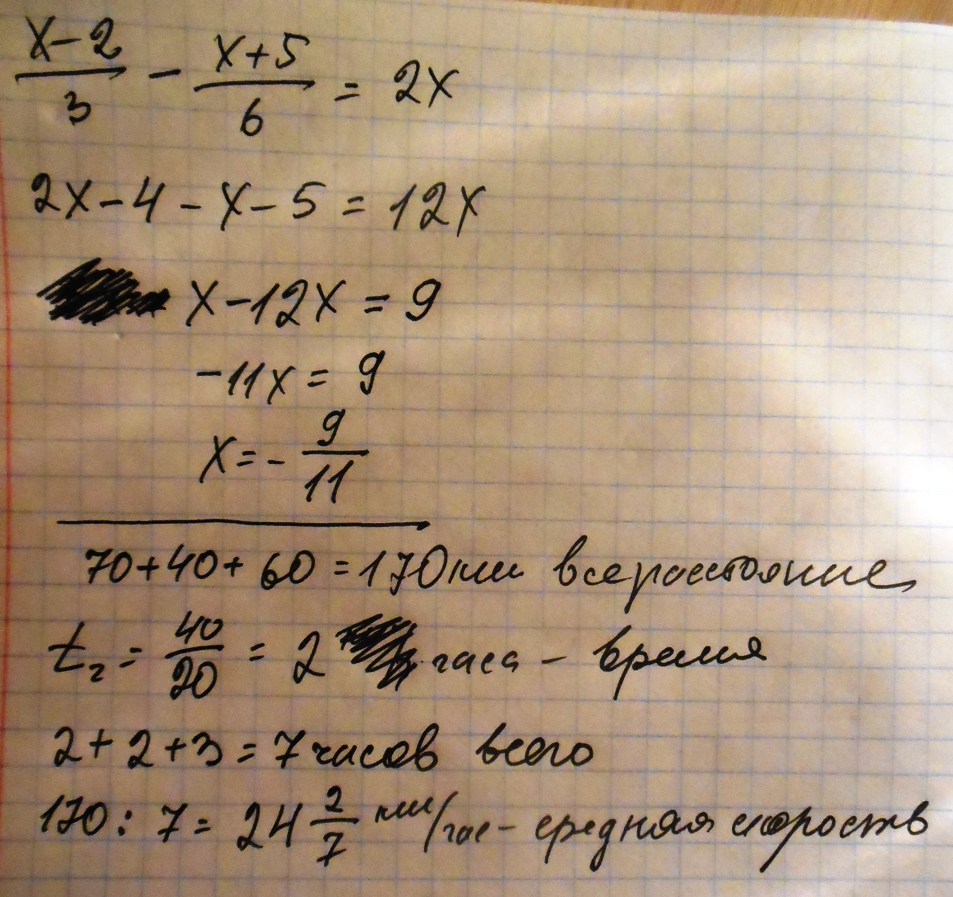 (x-2)/3 - (x+5)/6 = 2x
2x-4-x-5=12x
x-12x=9
-11x=9
x=-9/11
70+40+60=170км все расстояние
t₂=40/20=2 часа - время
2+2+3=7 часов всего
170:7=24 2/7 км/час - средняя скорость